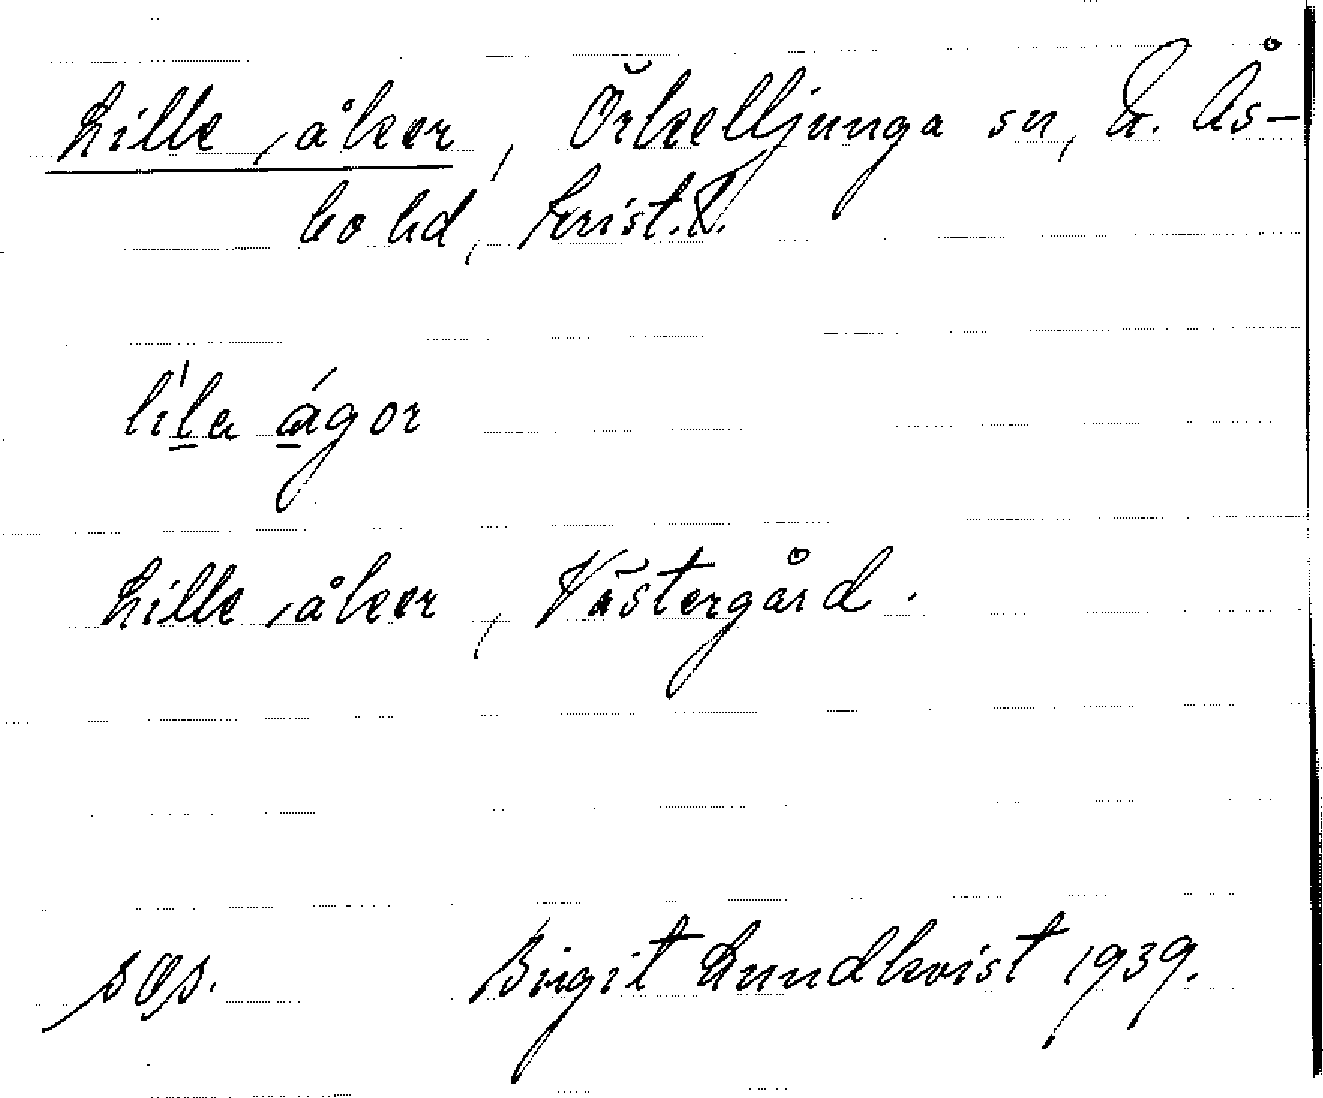 Lille, åker, Örkelljunga sn, N. Ås-
bo hd, Krist. l.
lila ágor
Lille, åker, Västergård.
Birgit Lundkvist 1939.